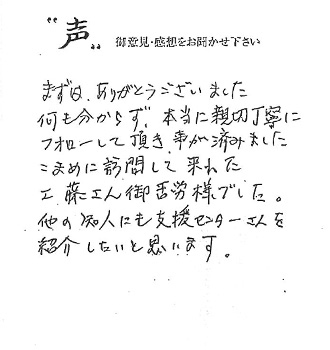 "声" 御意見・感想をお聞かせ下さい
まずは、ありがとうございました
何も分からず、本当に親切丁寧に
フォローして頂き事が済みました
こまめに訪問して来れた
工藤さん御苦労様でした。
他の知人にも支援センターさんを
紹介したいと思います。